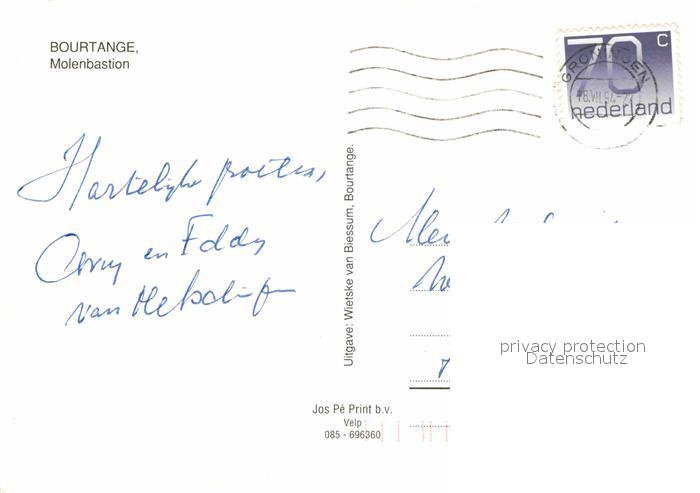 BOURTANGE,
Molenbastion
70 c
nederland
GRONINGEN
Hartelijke groeten,
Corry en Eddy
van
Uitgave: Wietske van Blessum, Bourtange.
privacy protection
Datenschutz
Jos Pé Print b.v.
Velp
085 - 696360